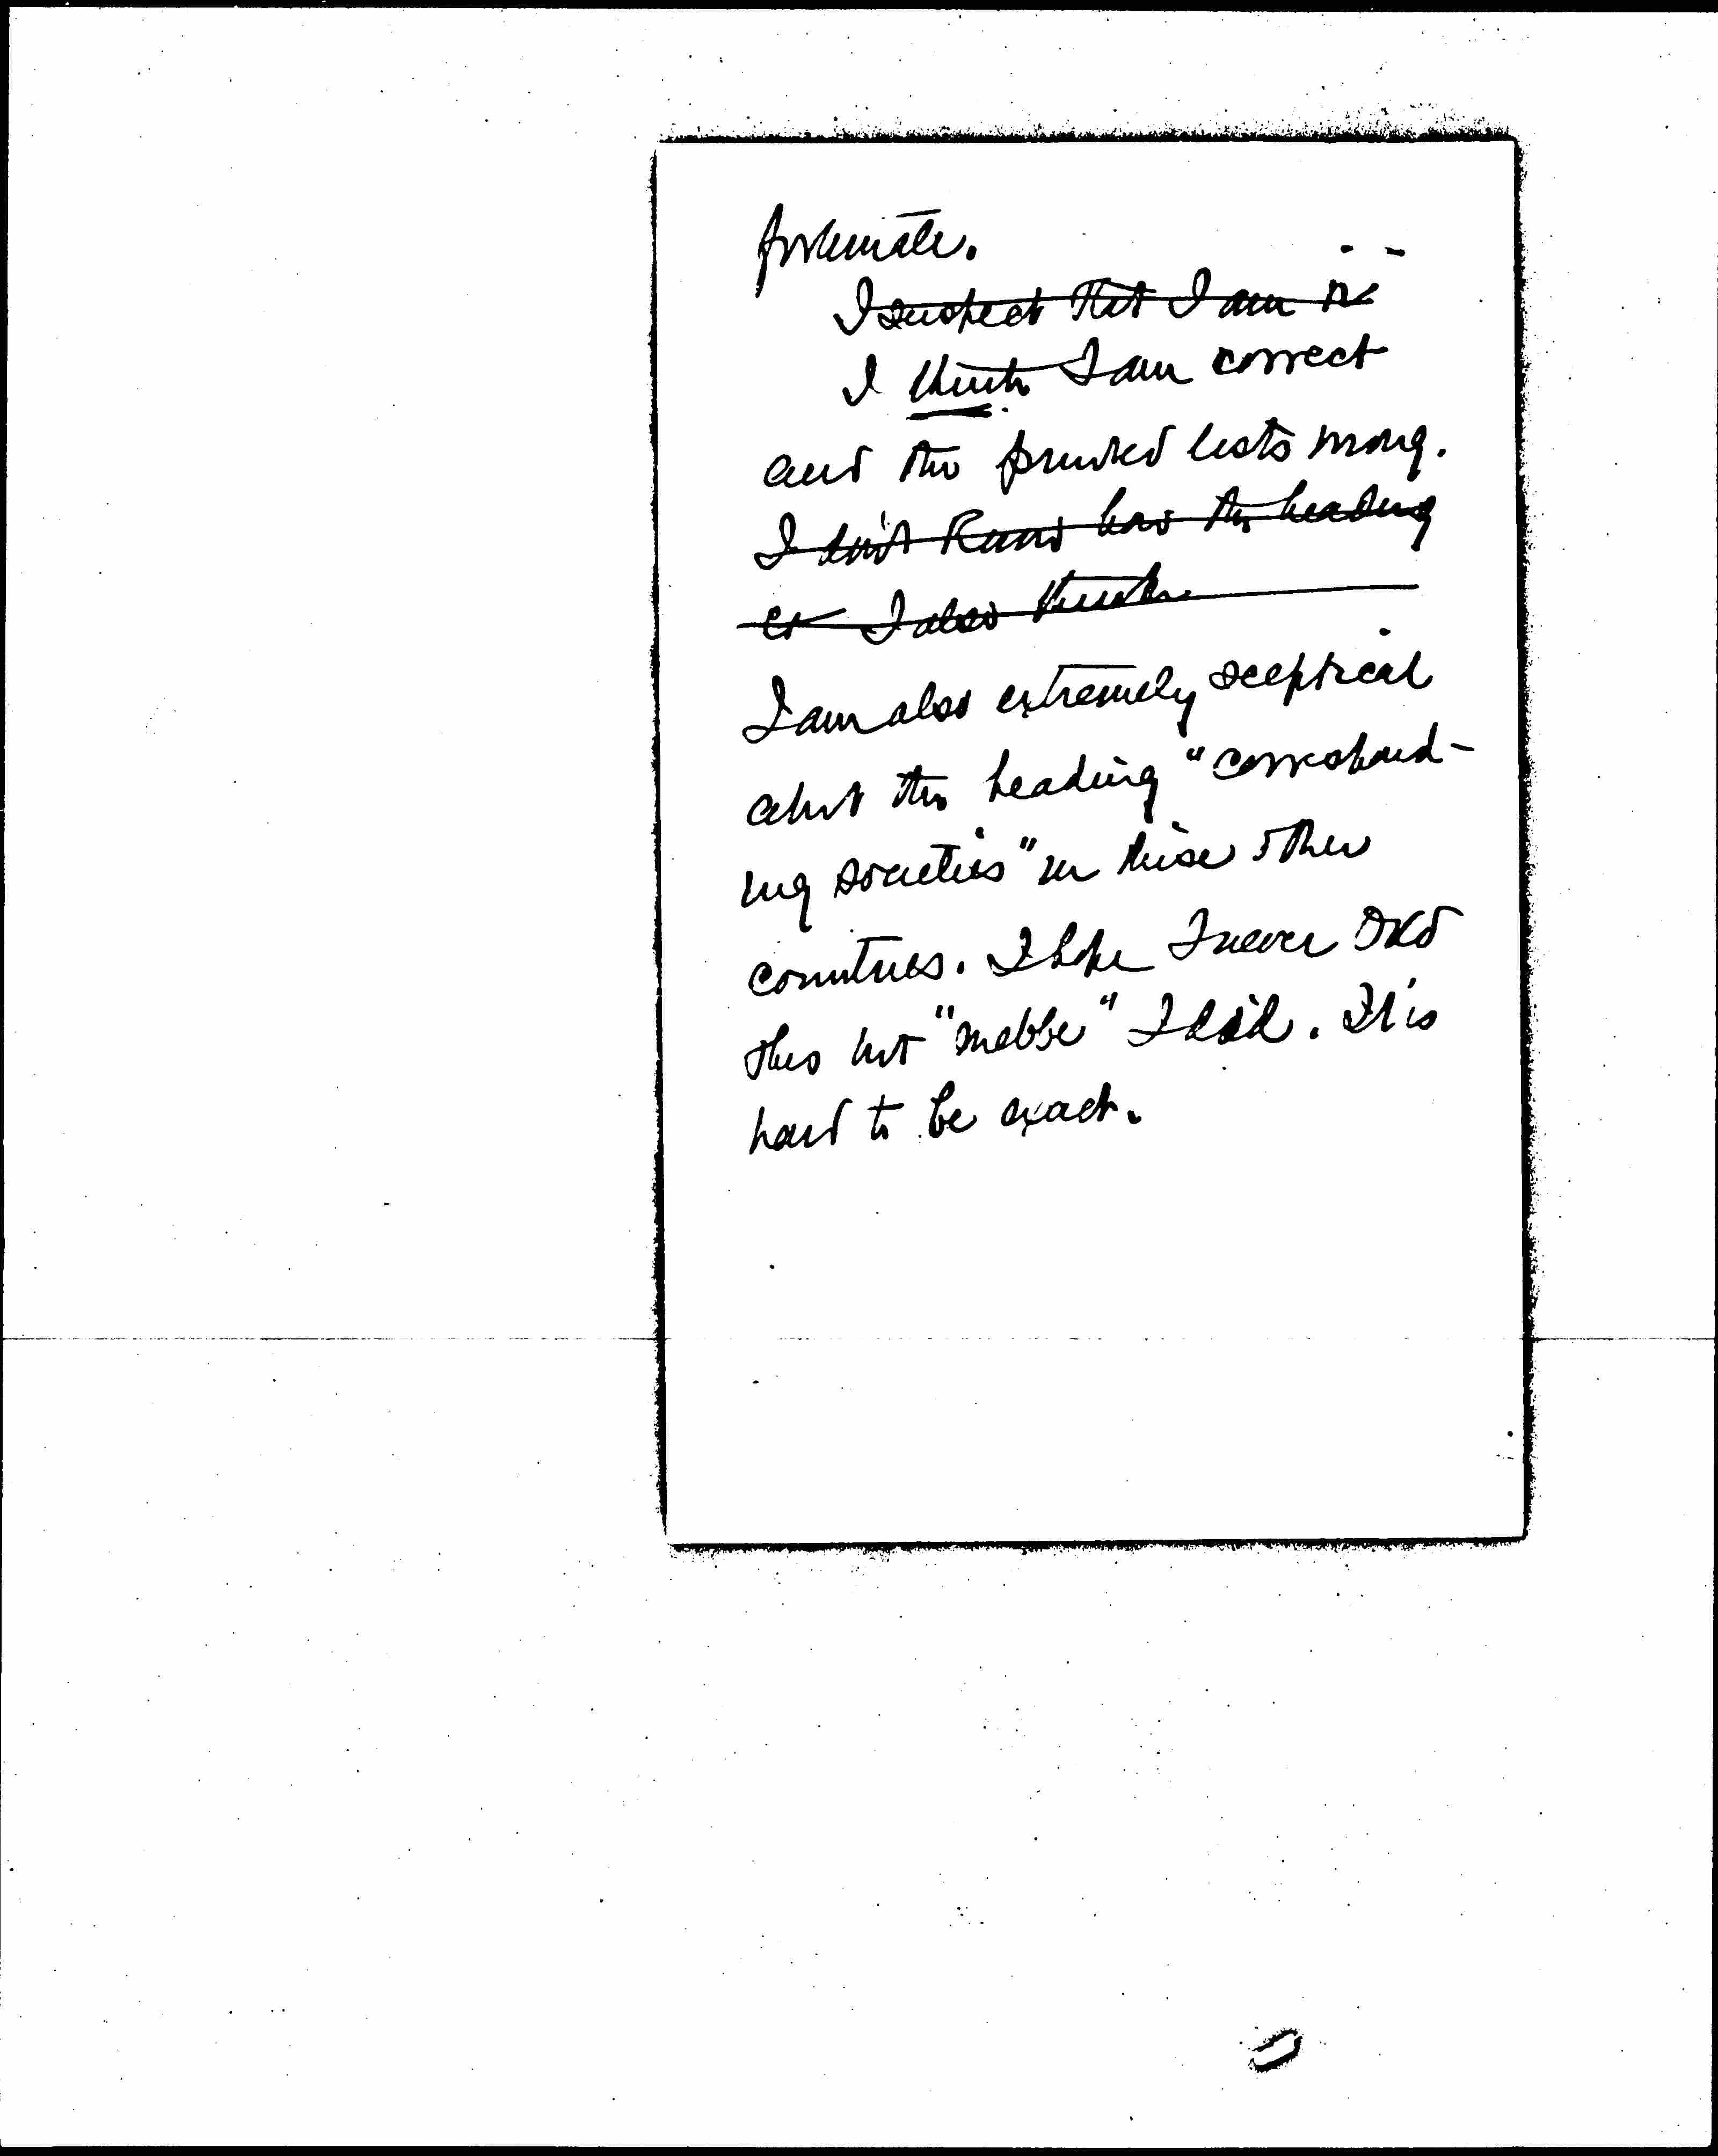 fortunate.
I suspect that I am
I think I am correct
and the printed lists wrong.
I don't know how the heading
I also think
I am also extremely sceptical
about the heading "correspond-
ing societies" in these other
countries. I hope I never OKd
this but "mebbe" I did. It is
hard to be exact.